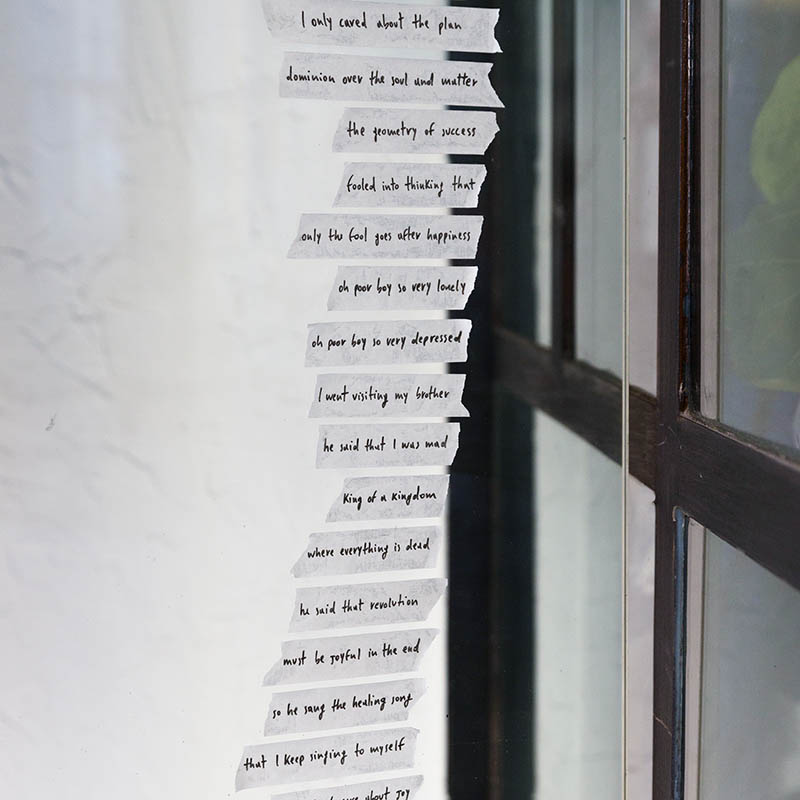 I only cared about the plan
dominion over the soul and matter
the geometry of success
fooled into thinking that
only the fool goes after happiness
oh poor boy so very lonely
oh poor boy so very depressed
I went visiting my brother
he said that I was mad
King of a Kingdom
where everything is dead
he said that revolution
must be joyful in the end
so he sang the healing song
that I keep singing to myself
about joy